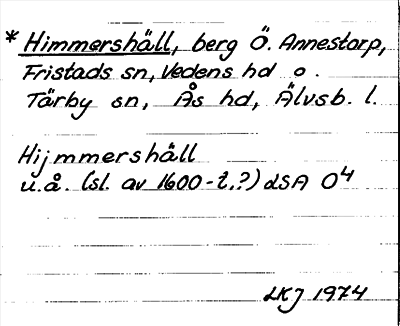 * Himmershäll, berg Ö. Annestorp,
Fristads sn, Vedens hd o.
Tärby sn, Ås hd, Älvsb. l.
Hijmmershäll
u.å. (sl. av 1600-t.?) LSA O4
LKJ 1974